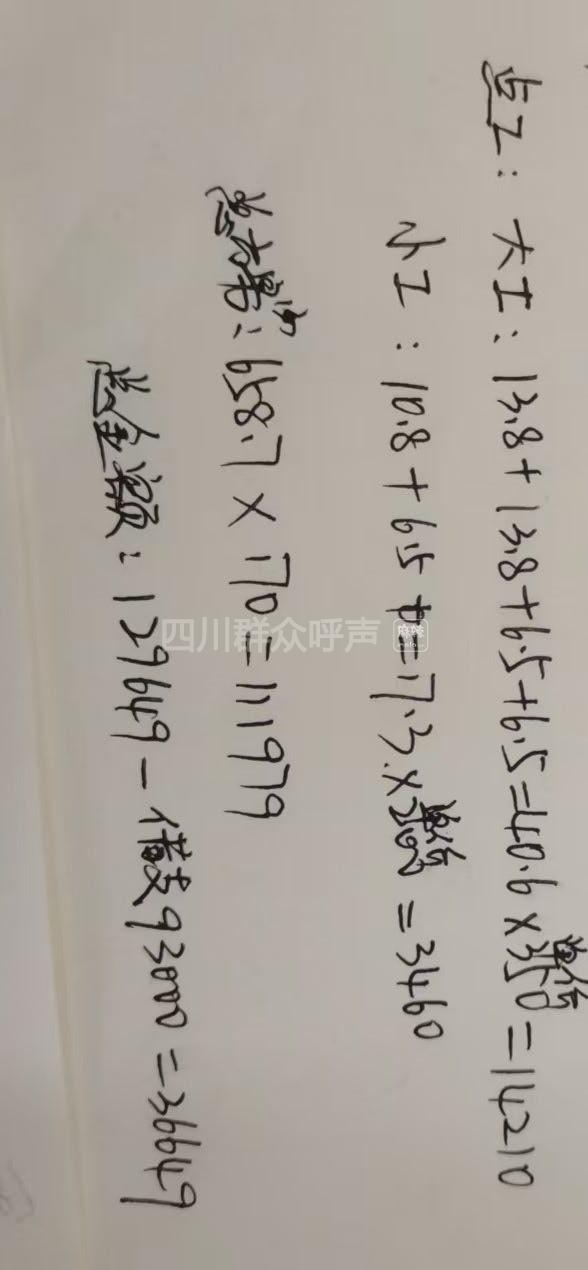 点工：大工：13.8+13.8+6.5+6.5=40.6×350=14210
单价
小工：10.8+6.5=17.3×200=3460
单价
总方量：658.7×170=111979
总金额：129649-借支93000=36649
四川群众呼声